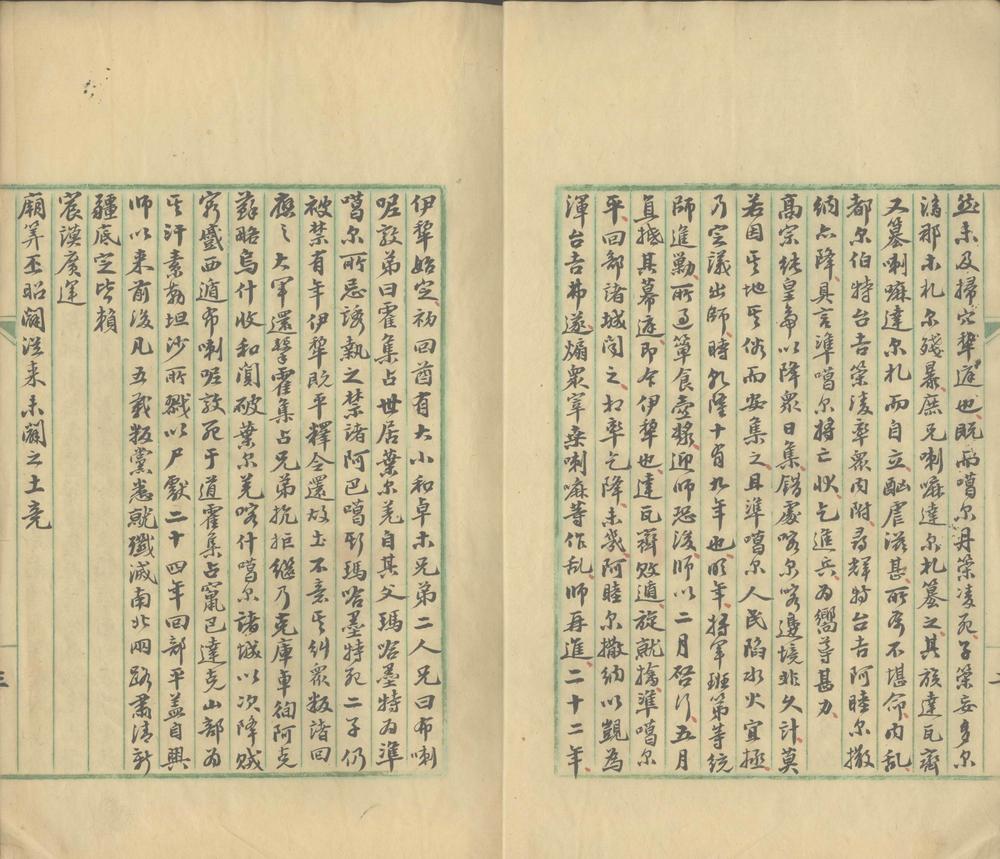 然未及掃穴犂庭也既而噶尔丹策凌死子策妄多尔
濟那木札尔殘暴庶兄喇嘛達尔札篡之其族達瓦齊
又篡喇嘛達尔札而自立酗虐滋甚所属不堪命内乱
都尔伯特台吉策凌率眾内附尋輝特台吉阿睦尔撒
納亦降具言準噶尔将亡狀乞進兵为嚮導甚力
高宗純皇帝以降眾日集錯處喀尔喀邊境非久計莫
若因其地其俗而安集之且準噶尔人民陷水火宜拯
乃定議出師時乾隆十有九年也明年将軍班第等統
師進勦所過簞食壺漿迎師恐後師以二月啓行五月
直抵其幕庭即今伊犂也達瓦齊敗遁旋就擒準噶尔
平回部諸城聞之相率乞降未幾阿睦尔撒納以覬为
渾台吉弗遂煽眾宰桒喇嘛等作乱師再進二十二年
伊犂始定初回酋有大小和卓木兄弟二人兄曰布喇
呢敦弟曰霍集占世居葉尔羌自其父瑪哈墨特为準
噶尔所忌誘執之禁諸阿巴噶斯瑪哈墨特死二子仍
被禁有年伊犂既平釋令還故土不意其糾眾叛諸回
應之大軍還擊霍集占兄弟抗拒繼乃克庫車徇阿克
蘇略烏什收和闐破葉尔羌喀什噶尔諸城以次降賊
窮蹙西遁布喇呢敦死于道霍集占竄巴達克山部为
其汗素勒坦沙所戮以尸獻二十四年回部平蓋自興
師以来前後凡五載叛黨悉就殲滅南北兩路肅清新
疆底定皆賴
宸謨廣運
廟算丕昭闢從来未闢之土竟